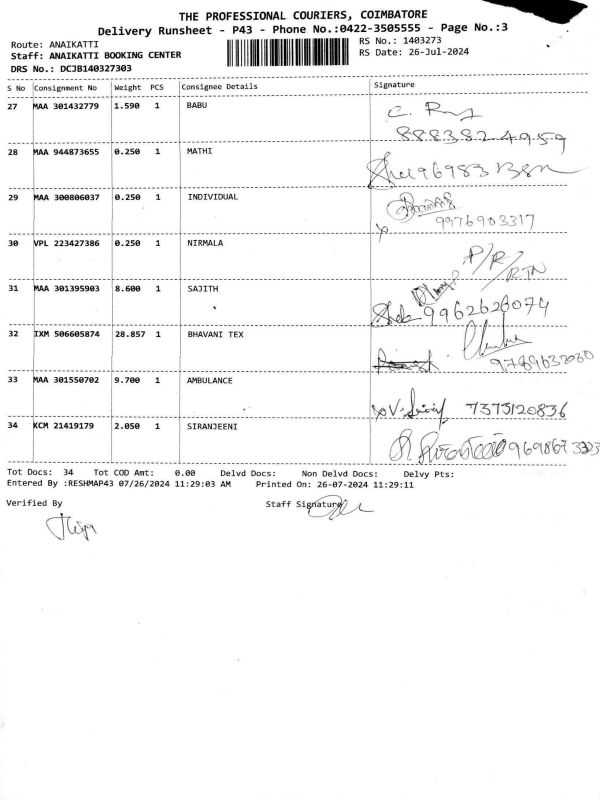 THE PROFESSIONAL COURIERS, COIMBATORE
Delivery Runsheet - P43 - Phone No.:0422-3505555 - Page No.:3
Route: ANAIKATTI
RS No.: 1403273
Staff: ANAIKATTI BOOKING CENTER
RS Date: 26-Jul-2024
DRS No.: DCJB140327303
S No Consignment No Weight PCS Consignee Details Signature
27 MAA 301432779 1.590 1 BABU
8883824959
28 MAA 944873655 0.250 1 MATHI
29 MAA 300806037 0.250 1 INDIVIDUAL
9976903317
30 VPL 223427386 0.250 1 NIRMALA
P/R/RTN
31 MAA 301395903 8.600 1 SAJITH
9962626074
32 IXM 506605874 28.857 1 BHAVANI TEX
33 MAA 301550702 9.700 1 AMBULANCE
7373120836
34 KCM 21419179 2.050 1 SIRANJEENI
Tot Docs: 34 Tot COD Amt: 0.00 Delvd Docs: Non Delvd Docs: Delvy Pts:
Entered By :RESHMAP43 07/26/2024 11:29:03 AM Printed On: 26-07-2024 11:29:11
Verified By
Staff Signature